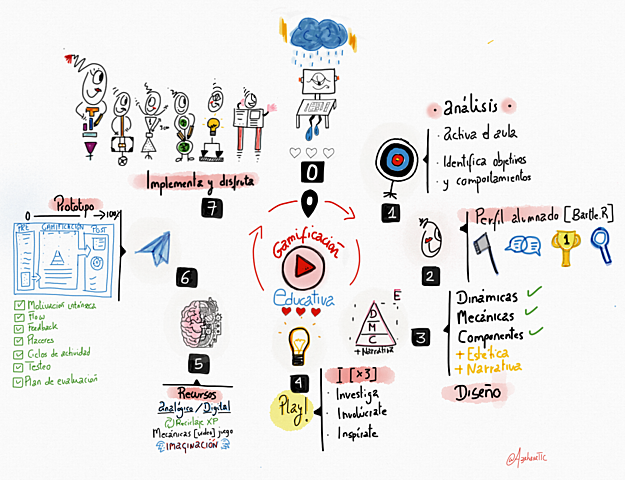 0
Gamificación
educativa
1
análisis
· Activa el aula
· Identifica objetivos
· y comportamientos
2
Perfil alumnado [Bartle.R]
1
3
E
D
M
C
+ Narrativa
Dinámicas
Mecánicas
Componentes
+ Estética
+ Narrativa
Diseño
4
Play!
I [x3]
· Investiga
· Involúcrate
· Inspírate
5
Recursos
analógico / Digital
Reciclaje XP
Mecánicas [video] juego
IMAGINACIÓN
6
Prototipo
0
100%
PRE
GAMIFICACIÓN
POST
Motivación intrínseca
Flow
Feedback
Placeres
Ciclos de actividad
Testeo
Plan de evaluación
7
Implementa y disfruta